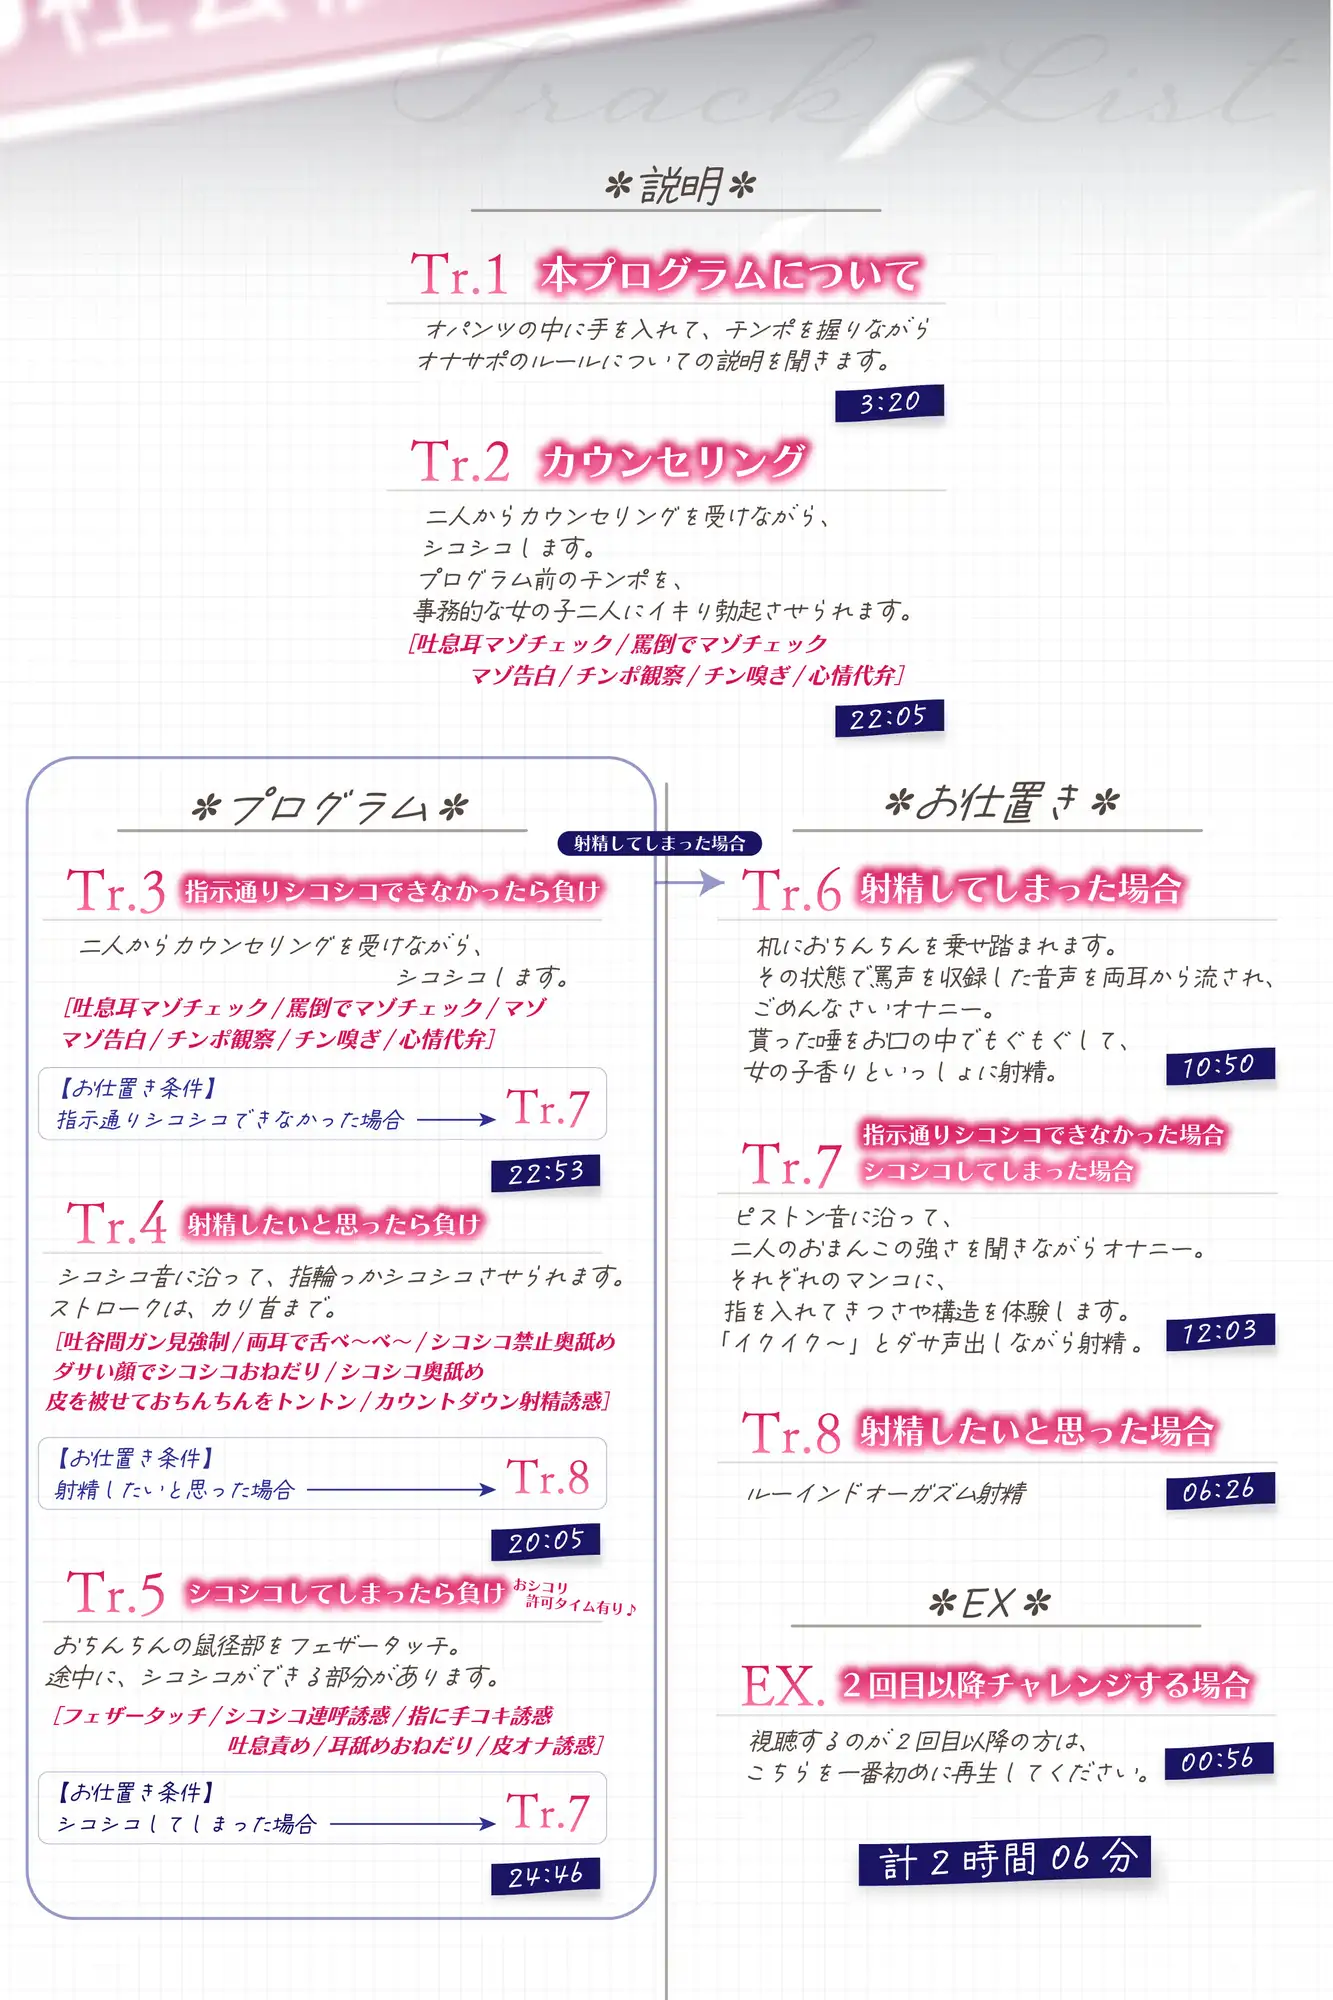 Track List
＊説明＊
Tr.1 本プログラムについて
オパンツの中に手を入れて、チンポを握りながら
オナサポのルールについての説明を聞きます。
3:20
Tr.2 カウンセリング
二人からカウンセリングを受けながら、
シコシコします。
プログラム前のチンポを、
事務的な女の子二人にイキり勃起させられます。
［吐息耳マゾチェック / 罵倒でマゾチェック
マゾ告白 / チンポ観察 / チン嗅ぎ / 心情代弁］
22:05
＊プログラム＊
射精してしまった場合
Tr.3 指示通りシコシコできなかったら負け
二人からカウンセリングを受けながら、
シコシコします。
［吐息耳マゾチェック / 罵倒でマゾチェック / マゾ
マゾ告白 / チンポ観察 / チン嗅ぎ / 心情代弁］
【お仕置き条件】
指示通りシコシコできなかった場合 → Tr.7
22:53
Tr.4 射精したいと思ったら負け
シコシコ音に沿って、指輪っかシコシコさせられます。
ストロークは、カリ首まで。
［吐谷間ガン見強制 / 両耳で舌べ〜べ〜 / シコシコ禁止奥舐め
ダサい顔でシコシコおねだり / シコシコ奥舐め
皮を被せておちんちんをトントン / カウントダウン射精誘惑］
【お仕置き条件】
射精したいと思った場合 → Tr.8
20:05
Tr.5 シコシコしてしまったら負け おシコリ
許可タイム有り♪
おちんちんの鼠径部をフェザータッチ。
途中に、シコシコができる部分があります。
［フェザータッチ / シコシコ連呼誘惑 / 指に手コキ誘惑
吐息責め / 耳舐めおねだり / 皮オナ誘惑］
【お仕置き条件】
シコシコしてしまった場合 → Tr.7
24:46
＊お仕置き＊
Tr.6 射精してしまった場合
机におちんちんを乗せ踏まれます。
その状態で罵声を収録した音声を両耳から流され、
ごめんなさいオナニー。
貰った唾をお口の中でもぐもぐして、
女の子香りといっしょに射精。
10:50
Tr.7 指示通りシコシコできなかった場合
シコシコしてしまった場合
ピストン音に沿って、
二人のおまんこの強さを聞きながらオナニー。
それぞれのマンコに、
指を入れてきつさや構造を体験します。
「イクイク〜」とダサ声出しながら射精。
12:03
Tr.8 射精したいと思った場合
ルーインドオーガズム射精
06:26
＊EX＊
EX. 2回目以降チャレンジする場合
視聴するのが2回目以降の方は、
こちらを一番初めに再生してください。
00:56
計2時間06分